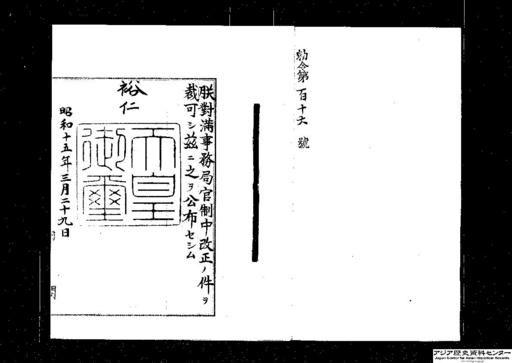 勅令第百十六號
朕對滿事務局官制中改正ノ件ヲ
裁可シ茲ニ之ヲ公布セシム
裕仁
天皇
御璽
昭和十五年三月二十九日
アジア歴史資料センター
Japan Center for Asian Historical Records